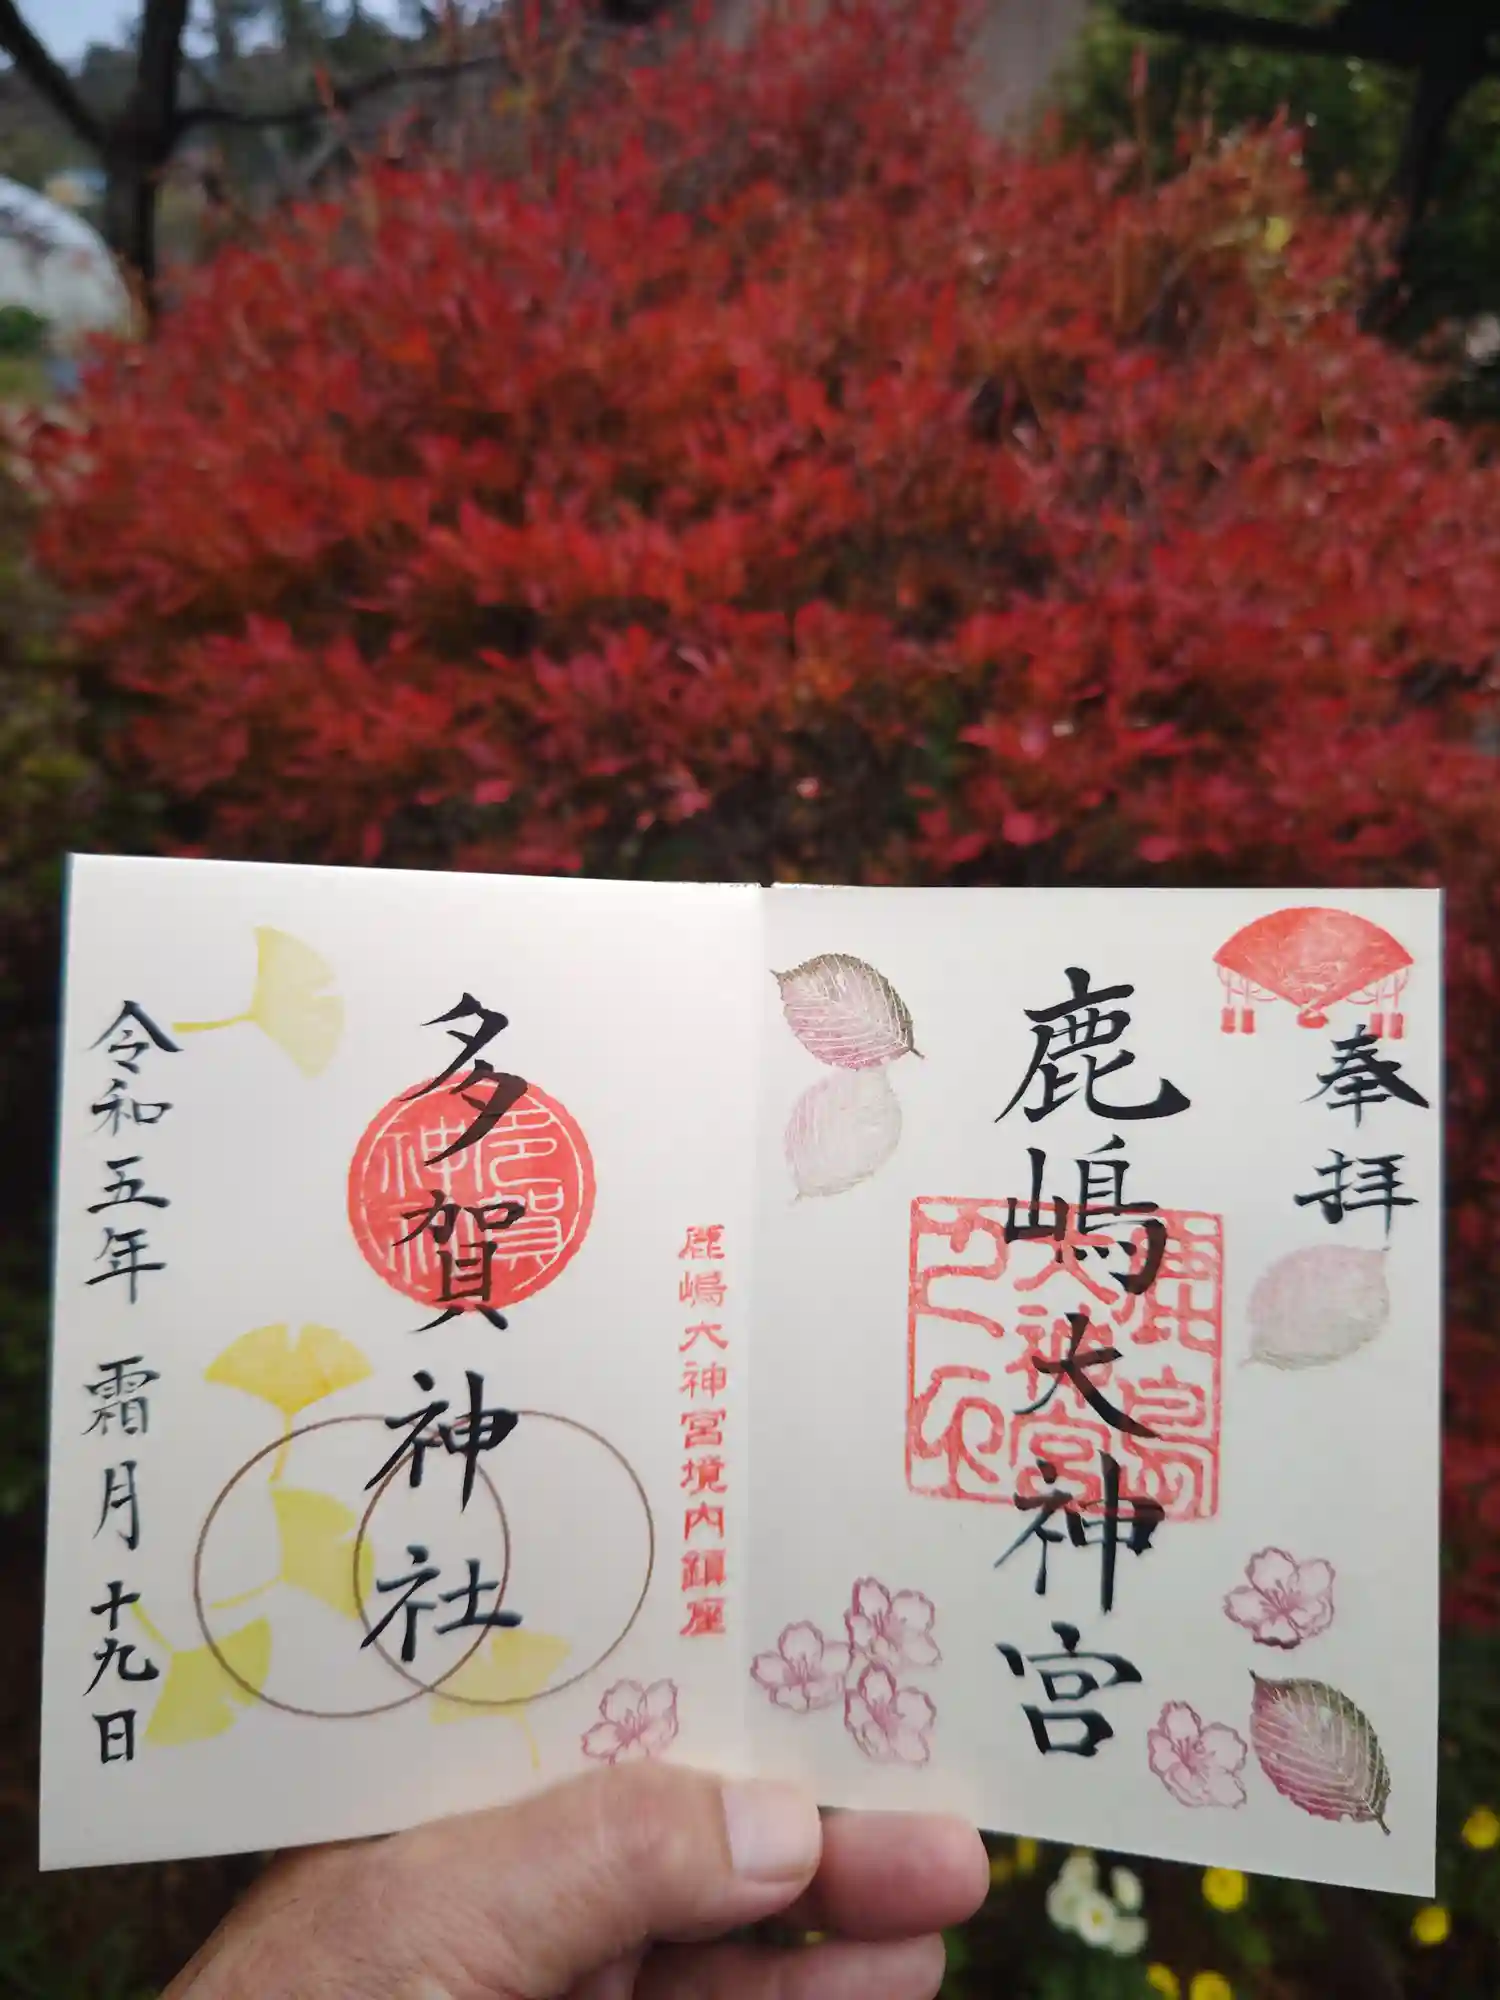 奉拝
鹿嶋大神宮
鹿島
大神宮
鹿嶋大神宮境内鎮座
多賀神社
多賀
神社
令和五年 霜月 十九日